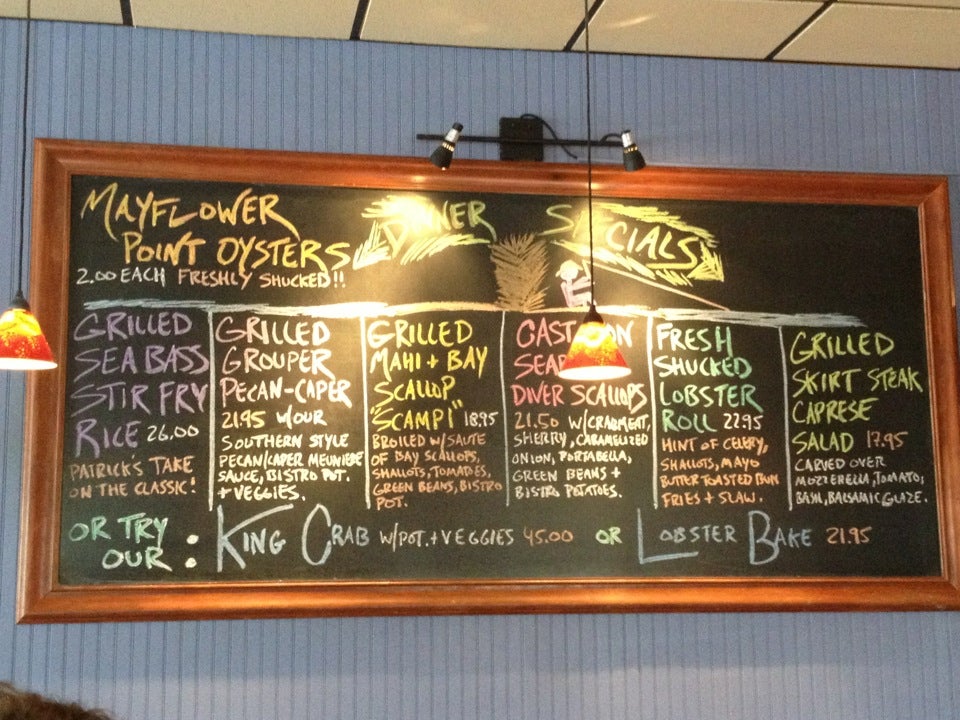 MAYFLOWER
POINT OYSTERS
2.00 EACH FRESHLY SHUCKED!!
GRILLED
SEA BASS
STIR FRY
RICE 26.00
PATRICK'S TAKE
ON THE CLASSIC!
GRILLED
GROUPER
PECAN-CAPER
21.95 W/OUR
SOUTHERN STYLE
PECAN/CAPER MEUNIERE
SAUCE, BISTRO POT.
+ VEGGIES.
GRILLED
MAHI + BAY
SCALLOP
"SCAMPI" 18.95
BROILED W/SAUTE
OF BAY SCALLOPS,
SHALLOTS, TOMATOES,
GREEN BEANS, BISTRO
POT.
DIVER SCALLOPS
21.50 W/CRABMEAT,
SHERRY, CARAMELIZED
ONION, PORTABELLA,
GREEN BEANS +
BISTRO POTATOES.
FRESH
SHUCKED
LOBSTER
ROLL 22.95
HINT OF CELERY,
SHALLOTS, MAYO
BUTTER TOASTED BUN
FRIES + SLAW.
GRILLED
SKIRT STEAK
CAPRESE
SALAD 17.95
CARVED OVER
MOZZERELLA, TOMATO,
BASIL, BALSAMIC GLAZE.
OR TRY
OUR :
KING CRAB W/POT. + VEGGIES 45.00 OR LOBSTER BAKE 21.95